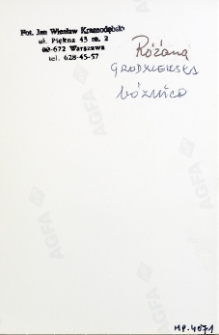 Fot. Jan Wiesław Krasnodębski
ul. Piękna 43 m. 2
00-672 Warszawa
tel. 628-45-57
Różana
GRODZIEŃSKA
bóżnica
AGFA
AGFA
AGFA
MP. 4071